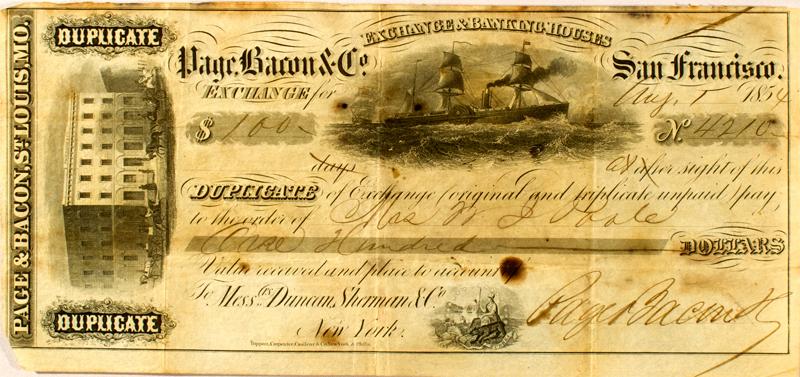 PAGE & BACON, ST LOUIS, MO.
DUPLICATE
DUPLICATE
EXCHANGE & BANKING HOUSES
Page, Bacon & Co.
San Francisco.
EXCHANGE for
Aug. 1 1854
$ 100-
No. 4210-
days at after sight of this
DUPLICATE of Exchange (original and triplicate unpaid) pay
to the order of Mrs W Poole
One Hundred DOLLARS
Value received and place to account
To Messrs. Duncan, Sherman & Co.
New York.
Page Bacon & Co
Toppan, Carpenter, Casilear & Co. New York & Phila.